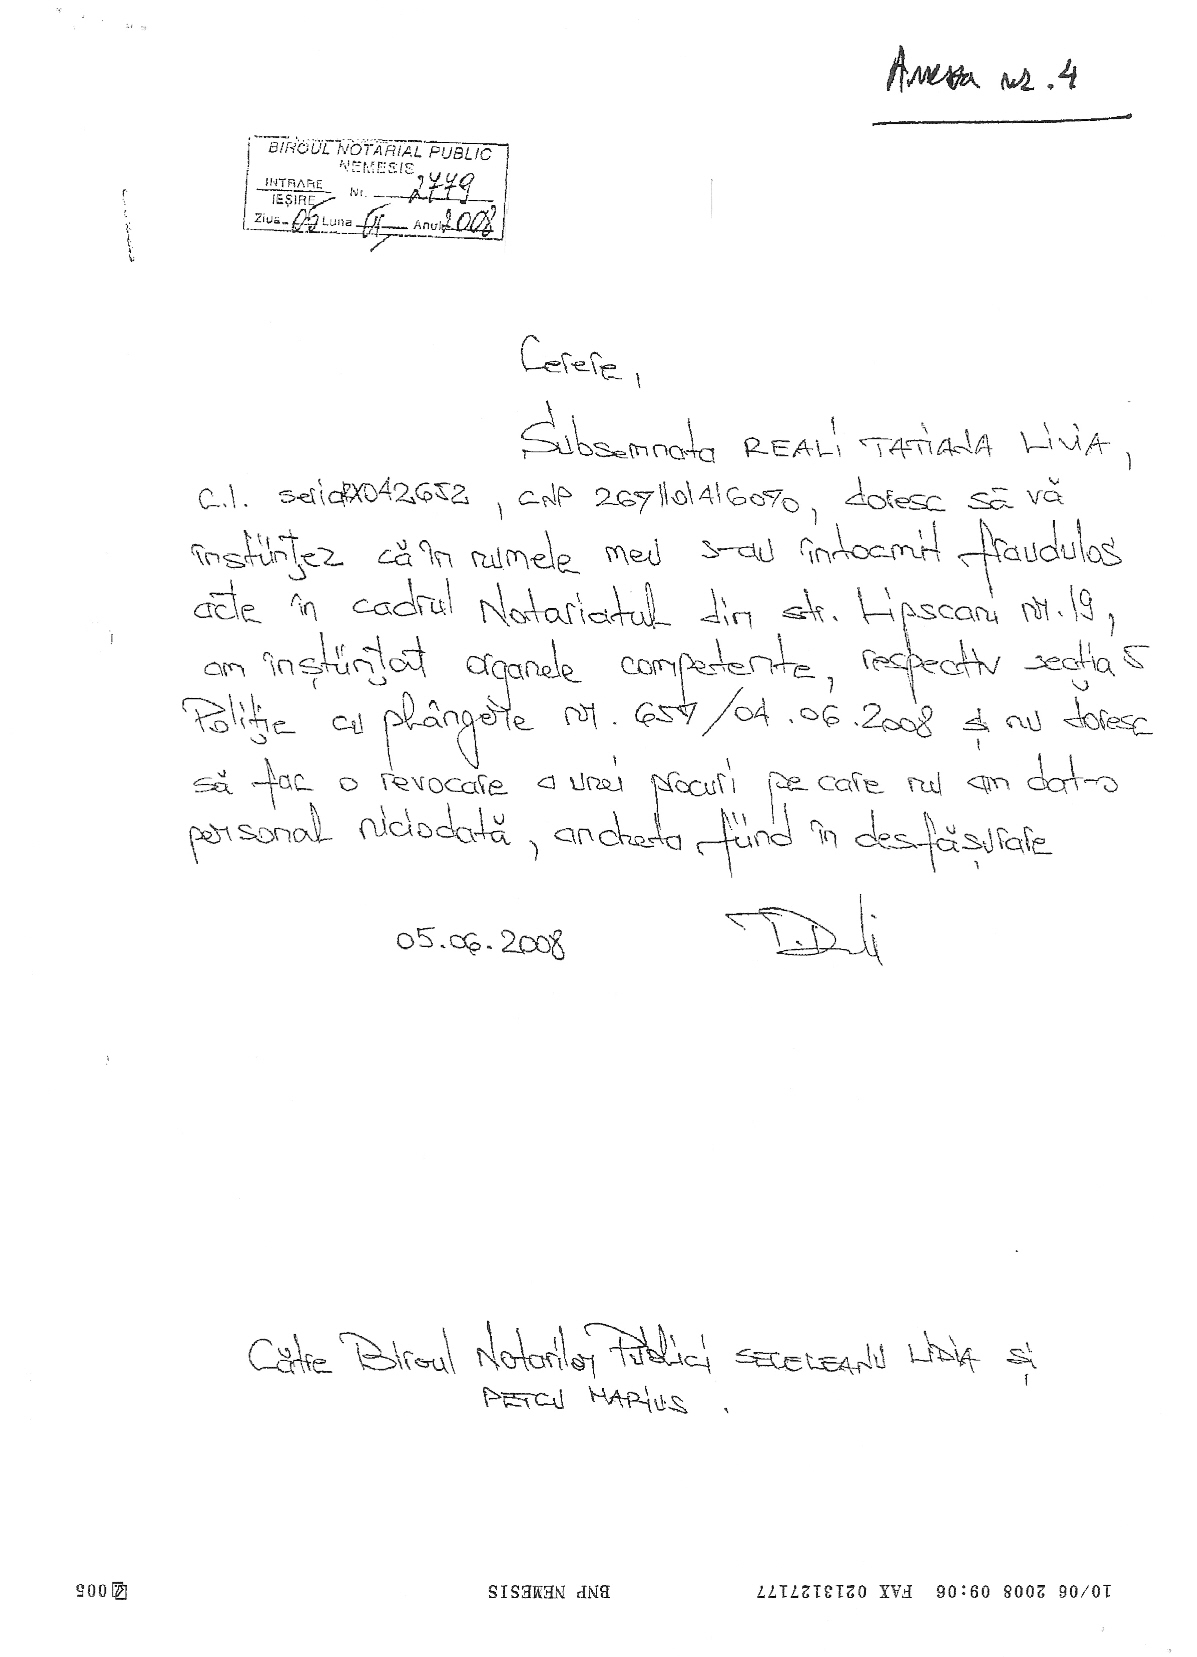 Anexa nr. 4
BIROUL NOTARIAL PUBLIC
NEMESIS
INTRARE
IEȘIRE Nr. 2779
Ziua 05 Luna Anul 2008
Cerere,
Subsemnata REALI TATIANA LIVIA,
C.I. seria RX042652, CNP 2671101416070, doresc să vă
înștiințez că în numele meu s-au întocmit fraudulos
acte în cadrul Notariatul din str. Lipscani nr. 19,
am înștiințat organele competente, respectiv secția 5
Poliție cu plângere nr. 657/04.06.2008 și nu doresc
să fac o revocare a unei procuri pe care nu am dat-o
personal niciodată, ancheta fiind în desfășurare
05.06.2008
Către Biroul Notarilor Publici SECELEANU LIDIA și
PETCU MARIUS.
10/06 2008 09:06 FAX 0213127177 BNP NEMESIS 005